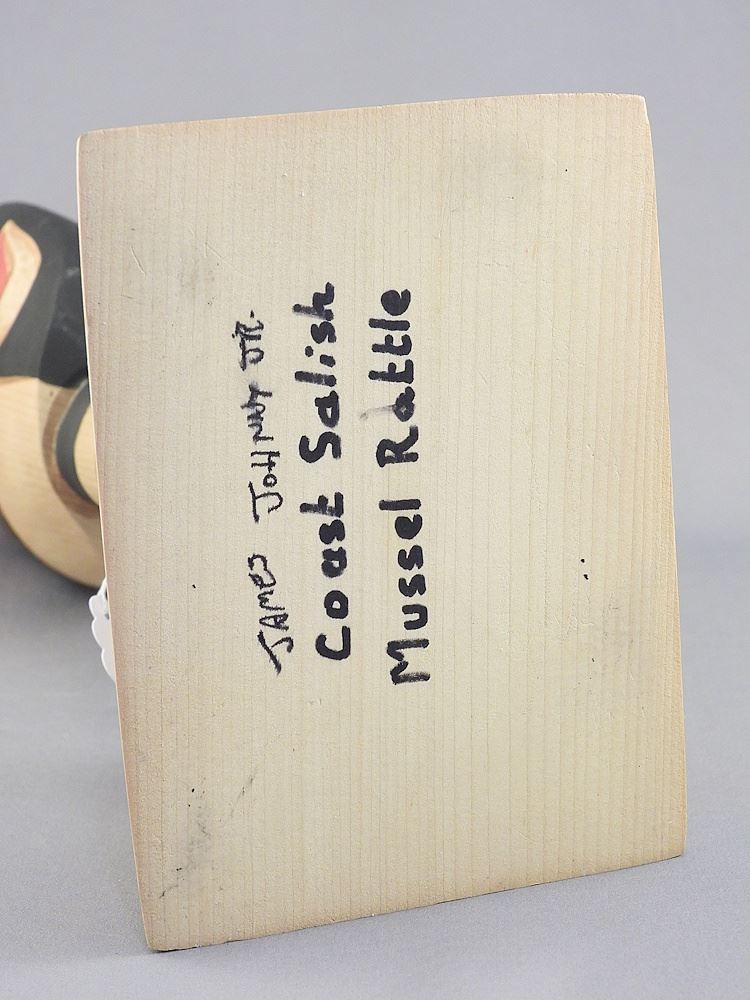 JAMES JOHNNY JR.
Coast Salish
Mussel Rattle